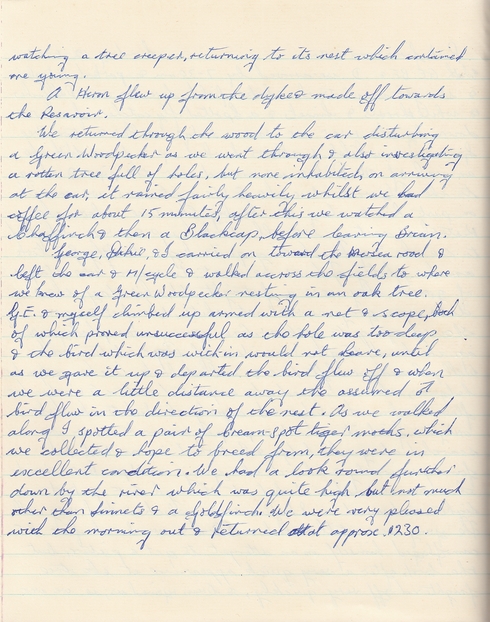 watching a tree creeper, returning to its nest which contained
one young.
A Heron flew up from the dyke & made off towards
the Resavoir.
We returned through the wood to the car disturbing
a Green Woodpecker as we went through & also investigating
a rotten tree full of holes, but none inhabited, on arriving
at the car, it rained fairly heavily, whilst we had
coffee for about 15 minutes, after this we watched a
Chaffinch & then a Blackcap, before leaving Brian.
George, & I carried on toward the road &
left the car & M/cycle & walked accross the fields to where
we knew of a Green Woodpecker nesting in an oak tree.
G.E. & myself climbed up armed with a net & scope, both
of which proved unsuccessful as the hole was too deep
& the bird which was within would not leave, until
as we gave it up & departed the bird flew off & when
we were a little distance away the assumed
bird flew in the direction of the nest. As we walked
along I spotted a pair of cream-spot tiger moths, which
we collected & hope to breed from, they were in
exccellent condition. We had a look round further
down by the river which was quite high but not much
other than linnets & a goldfinch. We were very pleased
with the morning out & returned at approx. 1230.